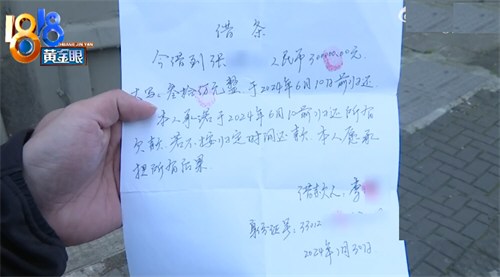 1818
黄金眼
借条
今借到张 人民币300000.00元
大写：叁拾万元整 于2024年6月10日前归还
本人承诺于2024年6月10前归还所有
欠款，若不按归定时间还款，本人愿承
担所有后果
借款人：李
身份证号：33012
2024年1月30日